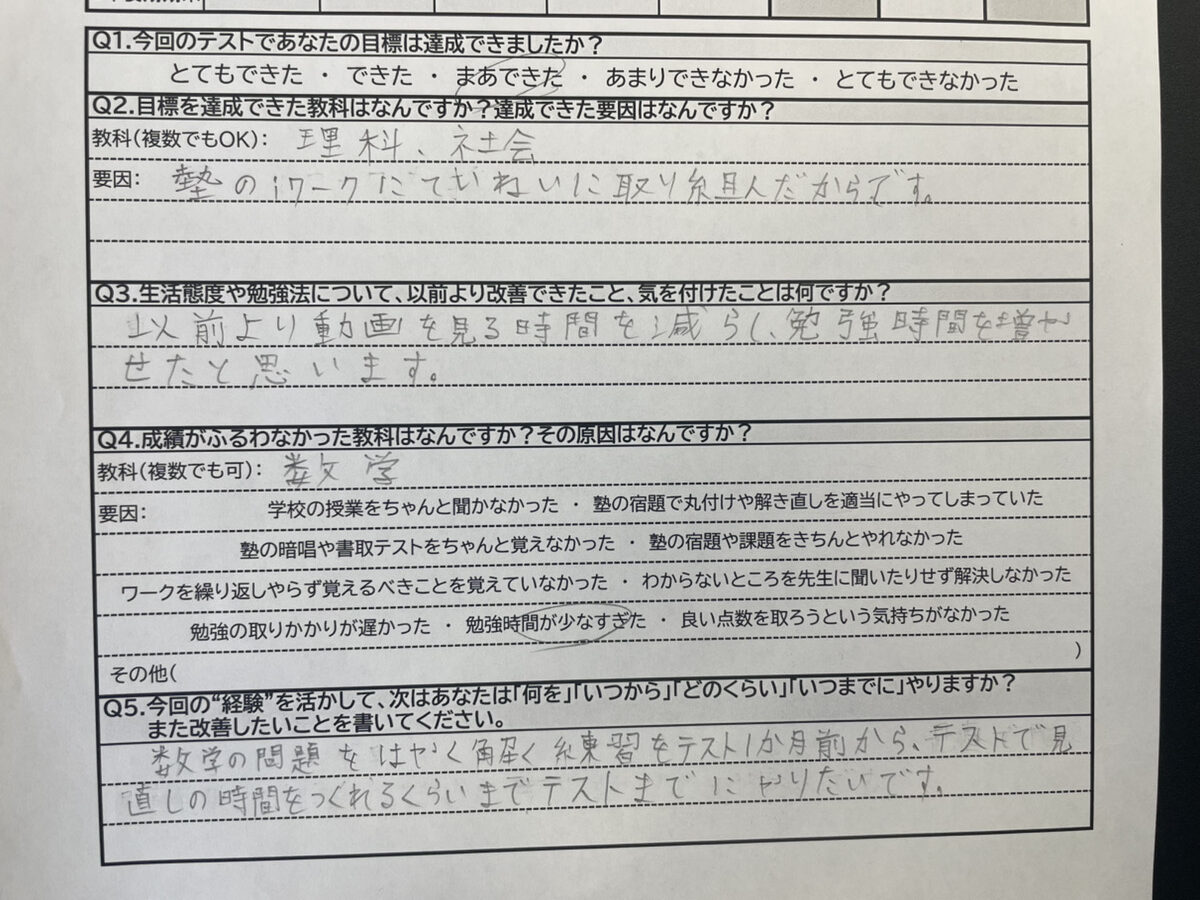 Q1.今回のテストであなたの目標は達成できましたか？
とてもできた ・ できた ・ まあできた ・ あまりできなかった ・ とてもできなかった
Q2.目標を達成できた教科はなんですか？達成できた要因はなんですか？
教科(複数でもOK)： 理科、社会
要因： 塾のiワークにていねいに取り組んだからです。
Q3.生活態度や勉強法について、以前より改善できたこと、気を付けたことは何ですか？
以前より動画を見る時間を減らし、勉強時間を増や
せたと思います。
Q4.成績がふるわなかった教科はなんですか？その原因はなんですか？
教科(複数でも可)： 数学
要因： 学校の授業をちゃんと聞かなかった ・ 塾の宿題で丸付けや解き直しを適当にやってしまっていた
塾の暗唱や書取テストをちゃんと覚えなかった ・ 塾の宿題や課題をきちんとやれなかった
ワークを繰り返しやらず覚えるべきことを覚えていなかった ・ わからないところを先生に聞いたりせず解決しなかった
勉強の取りかかりが遅かった ・ 勉強時間が少なすぎた ・ 良い点数を取ろうという気持ちがなかった
その他( )
Q5.今回の“経験”を活かして、次はあなたは「何を」「いつから」「どのくらい」「いつまでに」やりますか？
また改善したいことを書いてください。
数学の問題をはやく解く練習をテスト1か月前から、テストで見
直しの時間をつくれるくらいまでテストまでにやりたいです。